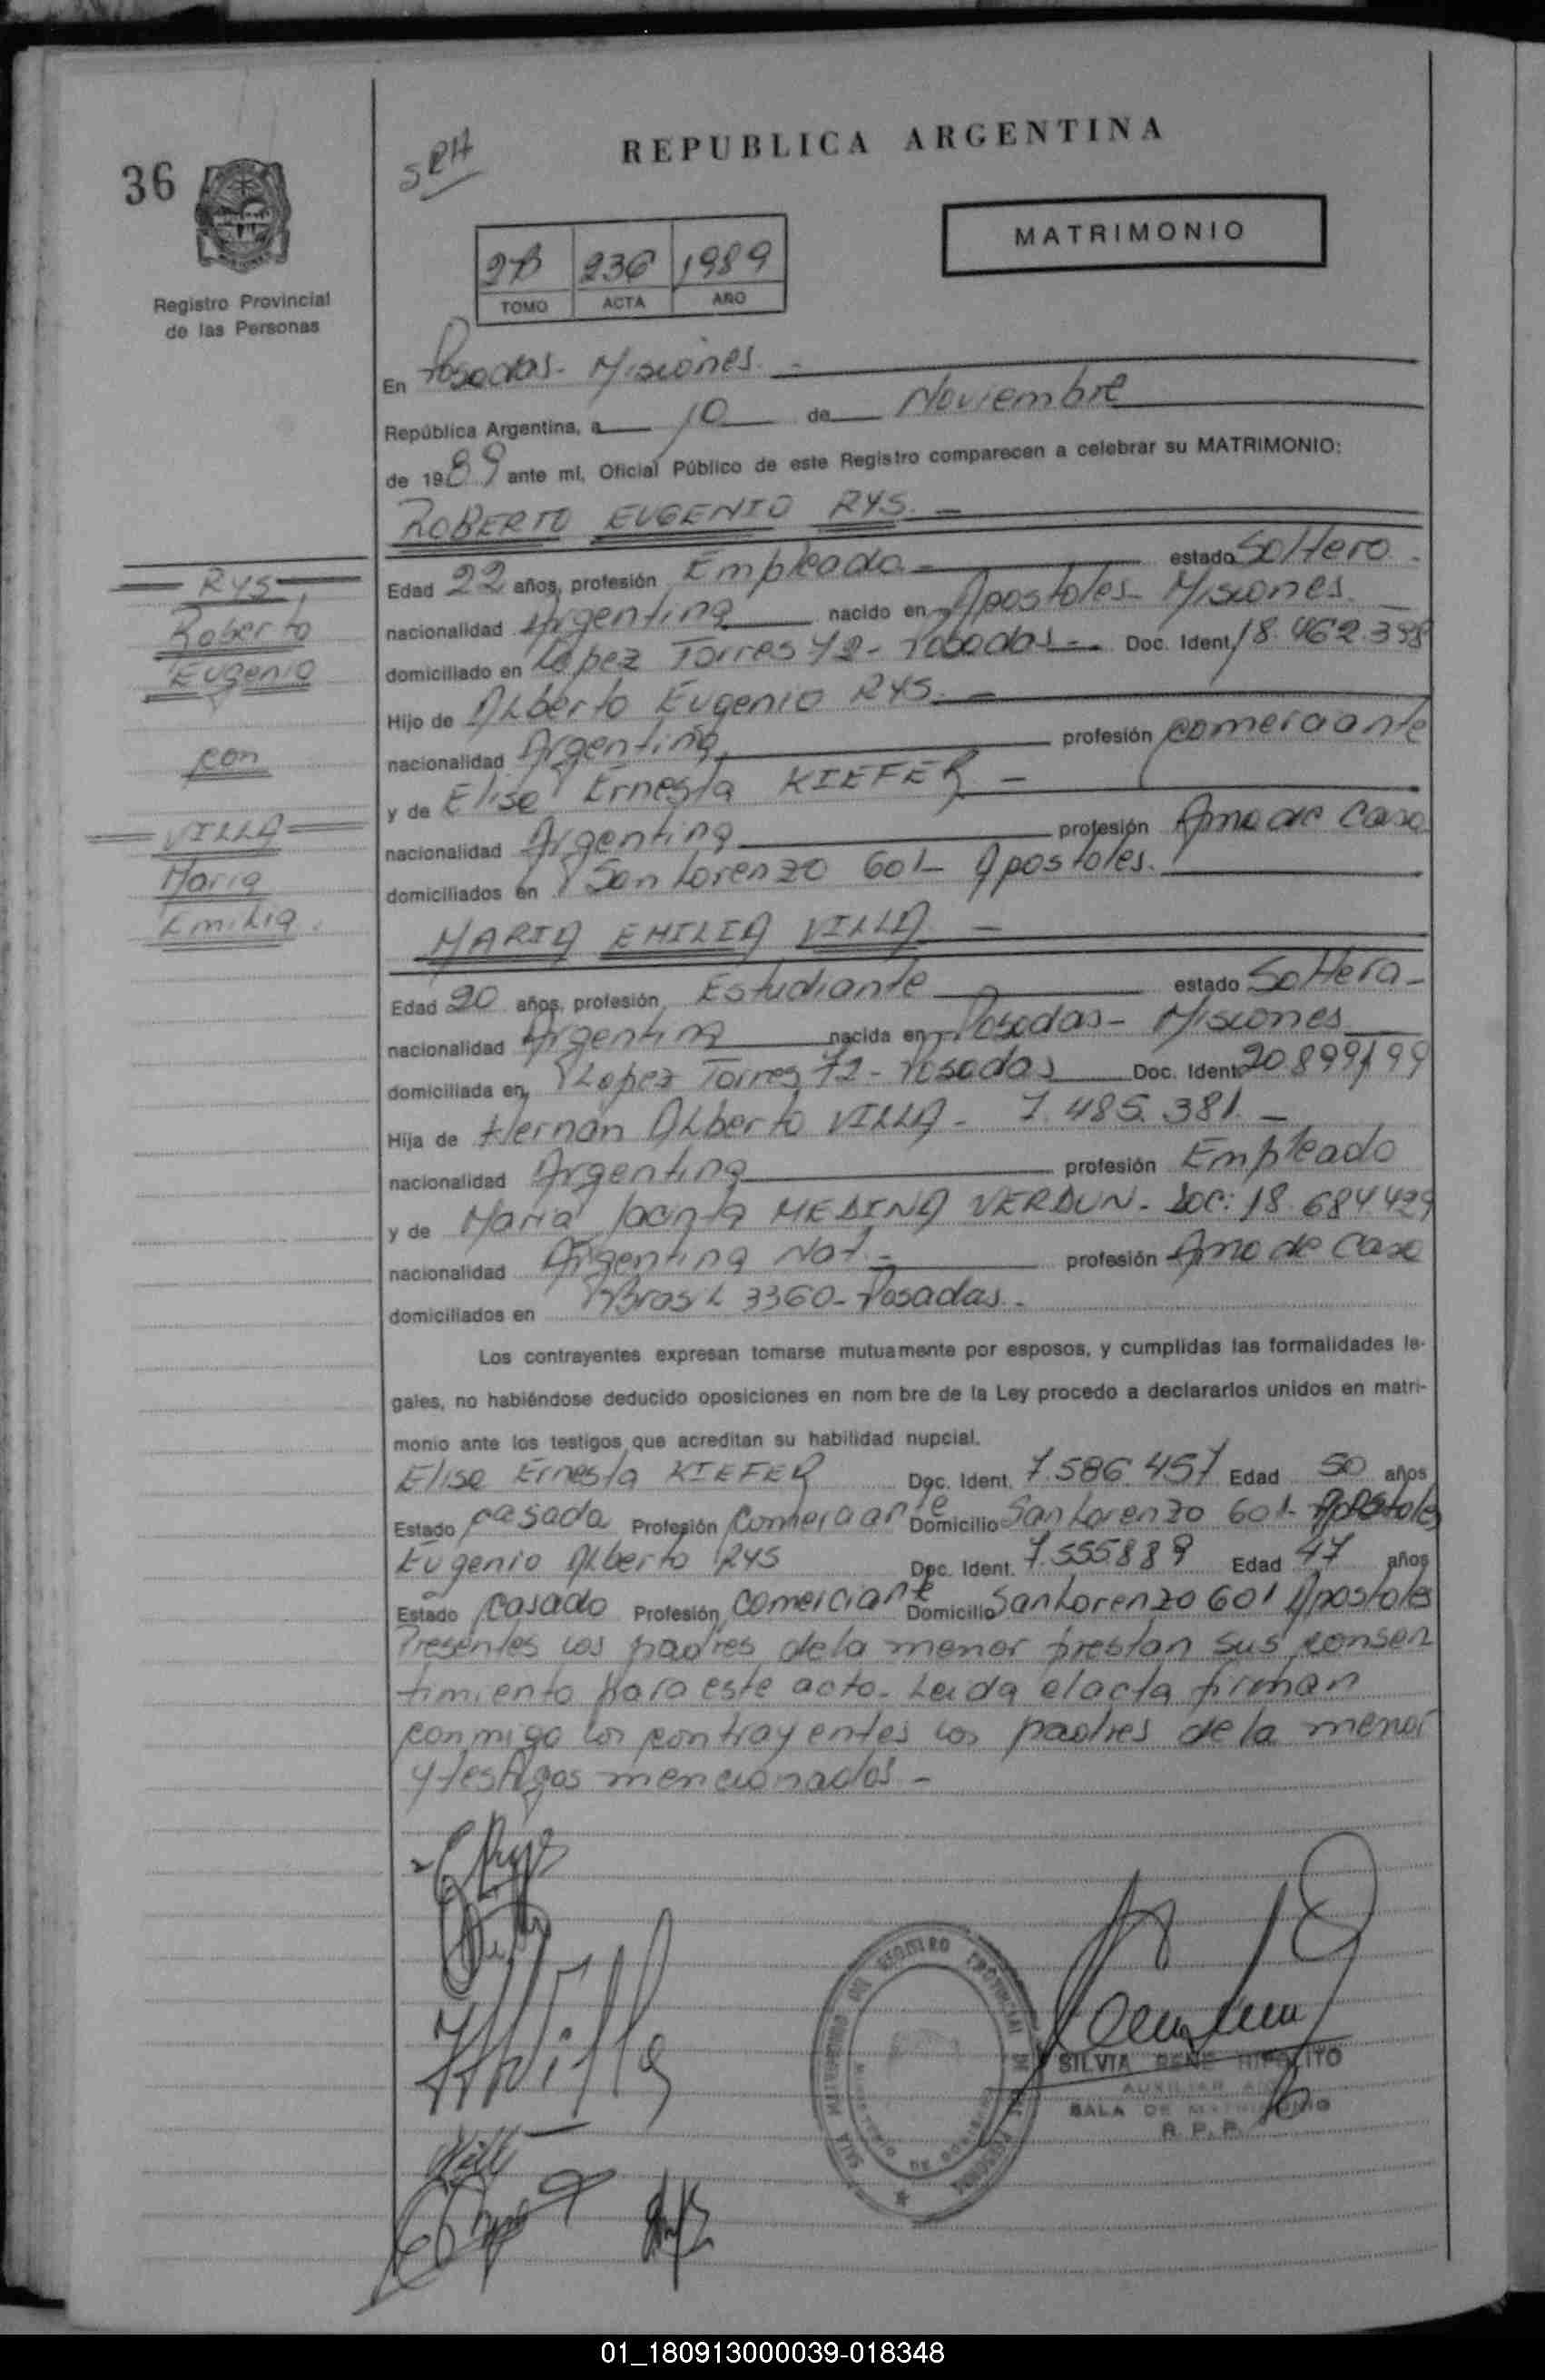 36
SRH
REPUBLICA ARGENTINA
MATRIMONIO
2B 236 1989
TOMO ACTA AÑO
Registro Provincial
de las Personas
En Posadas- Misiones.-
República Argentina, a 10 de Noviembre
de 1989 ante mi, Oficial Público de este Registro comparecen a celebrar su MATRIMONIO:
ROBERTO EUGENIO RYS.-
Edad 22 años, profesión Empleado.- estado Soltero.
nacionalidad Argentina nacido en Apostoles- Misiones.
domiciliado en Lopez Torres 72- Posadas-. Doc. Ident. 18.462.398
Hijo de Alberto Eugenio RYS.-
nacionalidad Argentina, profesión comerciante
y de Elisa Ernesta KIEFER-
nacionalidad Argentina profesión Ama de Casa
domiciliados en San Lorenzo 601- Apostoles.
RYS,
Roberto
Eugenio
con
VILLA
Maria
Emilia.
MARIA EMILIA VILLA.-
Edad 20 años, profesión Estudiante estado Soltera-
nacionalidad Argentina nacida en Posadas- Misiones
domiciliada en, Lopez Torres 72- Posadas Doc. Ident. 20.899.199
Hija de Hernan Alberto VILLA- 7.485.381.-
nacionalidad Argentina profesión Empleado
y de Maria Jacinta MEDINA VERDUN- Doc: 18.684429
nacionalidad Argentina Nat.- profesión Ama de Casa
domiciliados en Brasil 3360- Posadas.-
Los contrayentes expresan tomarse mutuamente por esposos, y cumplidas las formalidades le-
gales, no habiéndose deducido oposiciones en nom bre de la Ley procedo a declararlos unidos en matri-
monio ante los testigos que acreditan su habilidad nupcial.
Elisa Ernesta KIEFER Doc. Ident. 7.586.457 Edad 50 años
Estado casada Profesión Comerciante Domicilio San Lorenzo 601- Apostoles
Eugenio Alberto RYS Doc. Ident. 7.555889 Edad 47 años
Estado casado Profesión comerciante Domicilio San Lorenzo 601 Apostoles
Presentes los padres de la menor prestan sus consen
timiento para este acto- Leida el acta firman
conmigo los contrayentes los padres de la menor
y testigos mencionados-
HAVilla
SILVIA RENE HIPOLITO
AUXILIAR
SALA DE MATRIMONIO
R. P. P.
01_180913000039-018348